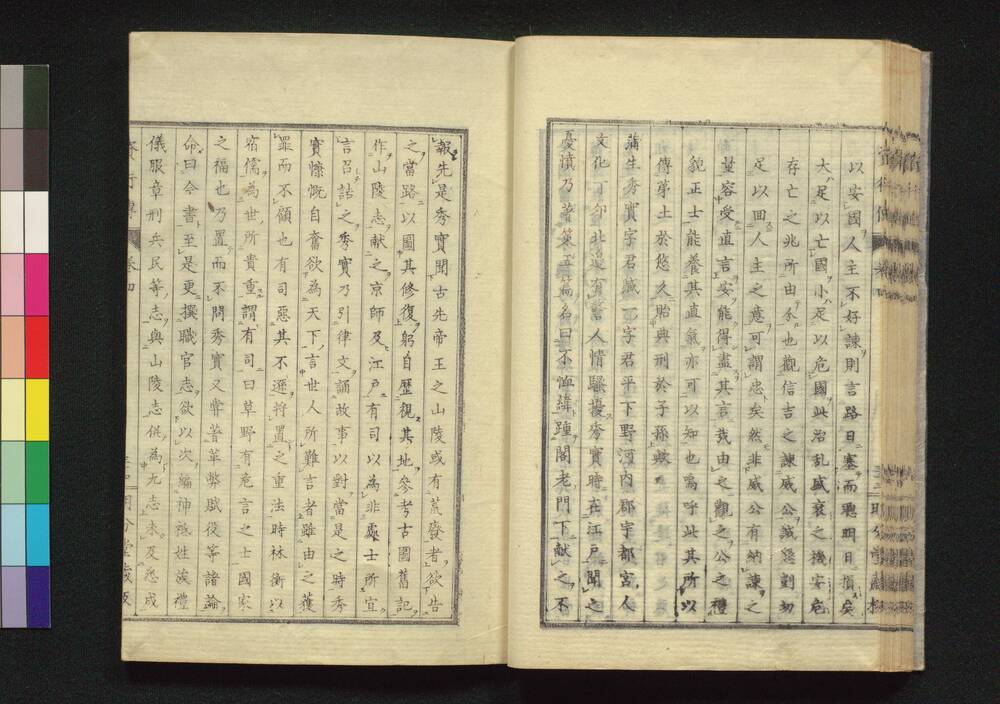 以安國人主不好諫則言路日塞而聰明日損矣
大足以亡國小足以危國此治乱盛衰之機安危
存亡之兆所由分也觀信吉之諫威公誠懇剴切
足以回人主之意可謂忠矣然非威公有納諫之
量容受直言安能得盡其言哉由之觀之公之禮
貌正士能養其直氣亦可以知也嗚呼此其所以
傳茅土於悠久貽典刑於子孫歟
蒲生秀實字君臧一字君平下野河内郡宇都宮人
文化丁卯北邊有警人情騷擾秀實時在江戸聞之
憂憤乃著策五篇名曰不恤緯踵閣老門下献之不
報先是秀實聞古先帝王之山陵或有荒廢者欲告
之當路以圖其修復躬自歷視其地參考古圖舊記
作山陵志献之京師及江戸有司以為非處士所宜
言召詰之秀實乃引律文誦故事以對當是之時秀
實慷慨自奮欲為天下言世人所難言者雖由之獲
罪而不顧也有司惡其不遜將置之重法時林衡以
宿儒為世所貴重謂有司曰草野有危言之士國家
之福也乃置而不問秀實又嘗著革弊賦役等諸論
命曰今書至是更撰職官志欲以次編神祗姓族禮
儀服章刑兵民等志與山陵志併為九志未及悉成